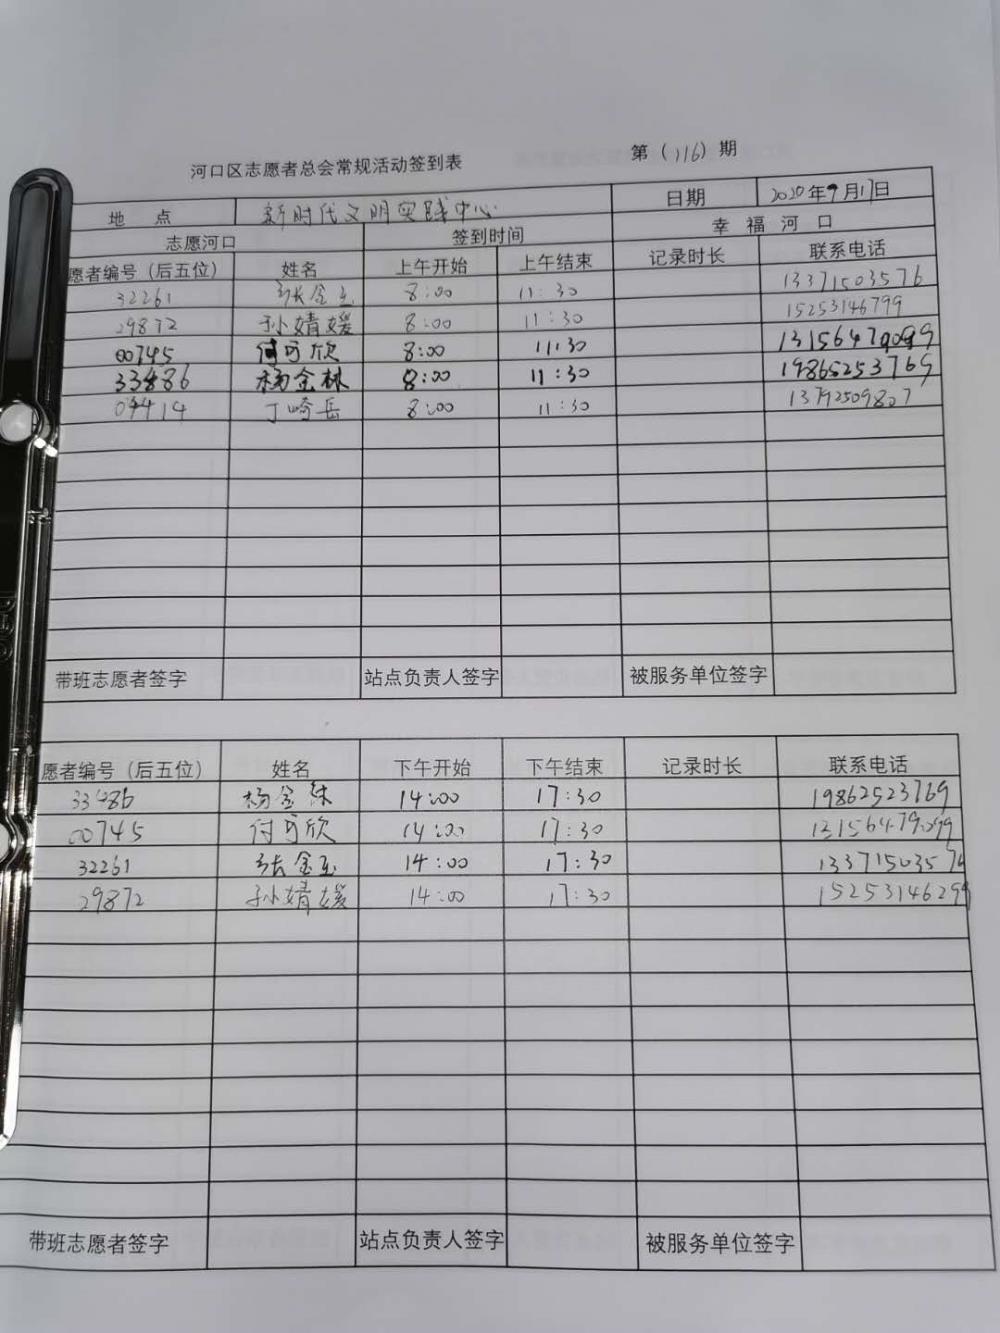 河口区志愿者总会常规活动签到表 第（116）期
地 点 新时代文明实践中心 日期 2020年9月17日
志愿河口 签到时间 幸 福 河 口
愿者编号（后五位） 姓名 上午开始 上午结束 记录时长 联系电话
32261 张金玉 8:00 11:30 13371503576
29872 孙婧媛 8:00 11:30 15253146799
00745 付可欣 8:00 11:30 13156479099
33486 杨金林 8:00 11:30 19865253769
09414 丁崎岳 8:00 11:30 13792509807
带班志愿者签字 站点负责人签字 被服务单位签字
愿者编号（后五位） 姓名 下午开始 下午结束 记录时长 联系电话
33486 杨金林 14:00 17:30 19862523769
00745 付可欣 14:00 17:30 13156479099
32261 张金玉 14:00 17:30 13371503576
29872 孙婧媛 14:00 17:30 15253146299
带班志愿者签字 站点负责人签字 被服务单位签字